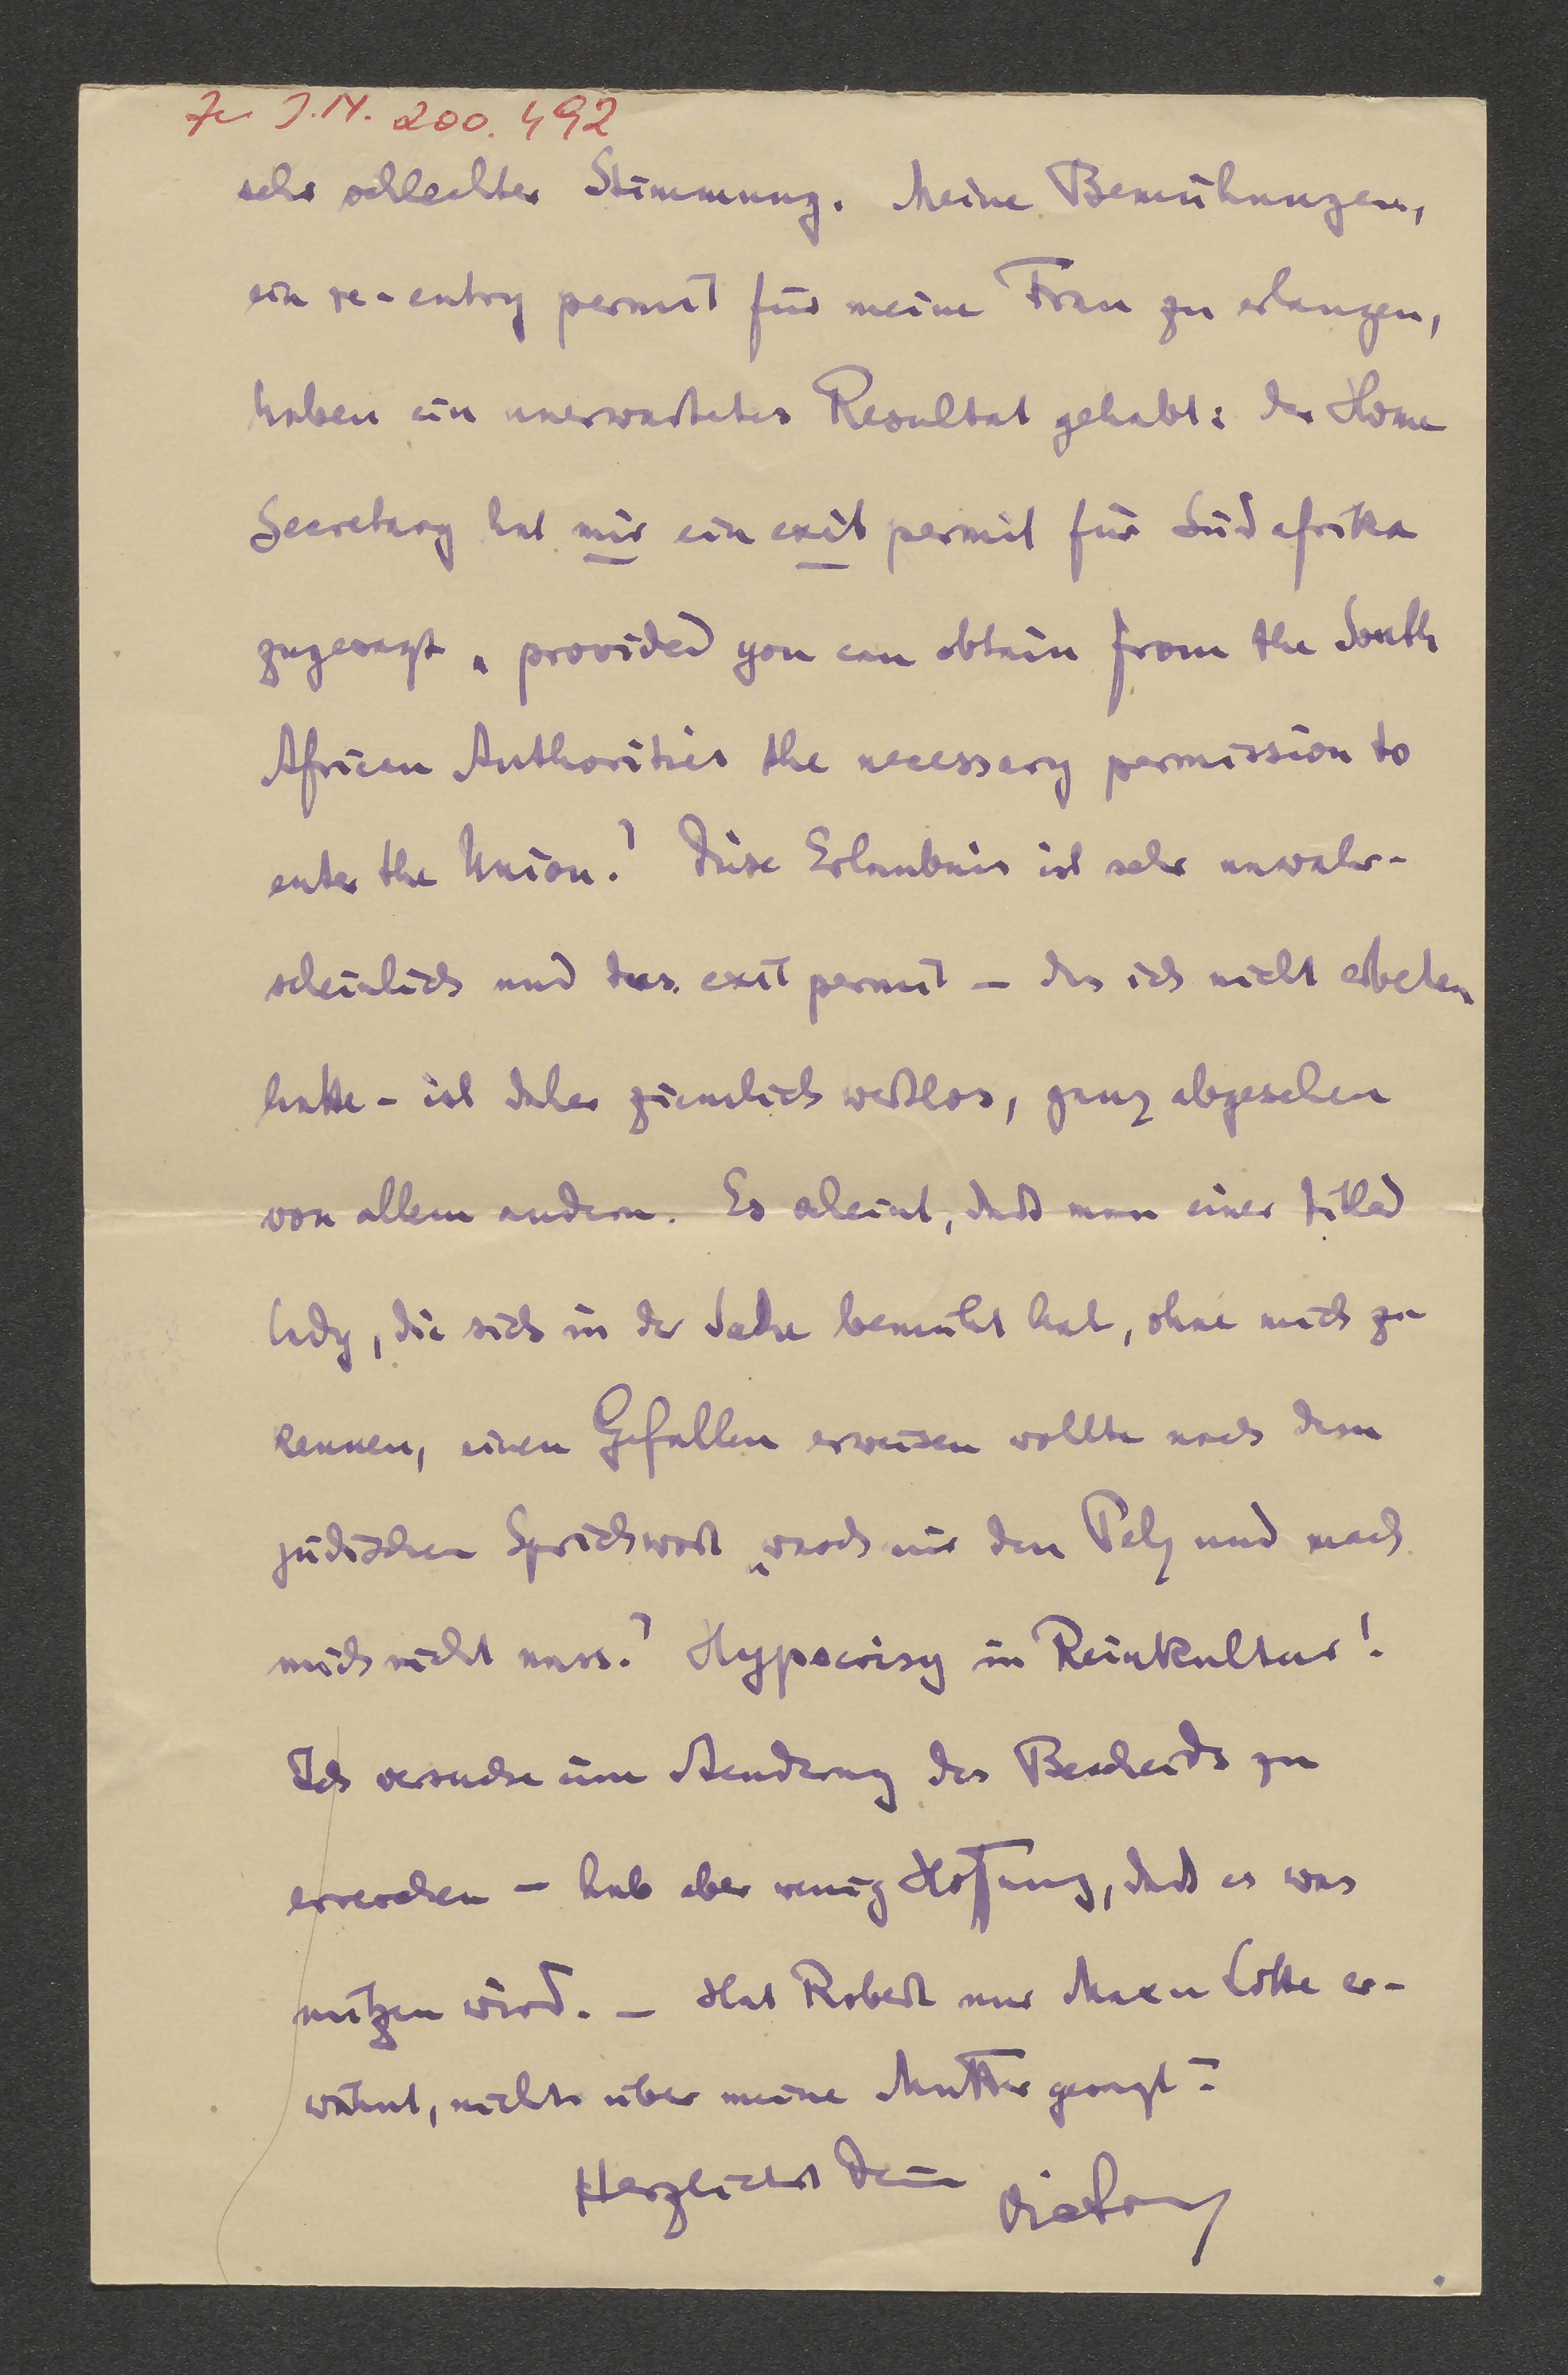 Zu I.N. 200.492
sehr schlechter Stimmung. Meine Bemühungen,
ein re-entry permit für meine Frau zu erlangen,
haben ein unerwartetes Resultat gehabt: der Home
Secretary hat mir ein exit permit für Südafrika
zugesagt „provided you can obtain from the South
African Authorities the necessary permission to
enter the Union." Diese Erlaubnis ist sehr unwahr-
scheinlich und das exit permit – das ich nicht erbeten
hatte – ist daher ziemlich wertlos, ganz abgesehen
von allem andern. Es scheint, daß man einer titled
lady, die sich in der Sache bemüht hat, ohne mich zu
kennen, einen Gefallen erweisen wollte nach dem
jüdischen Sprichwort „wasch mir den Pelz und mach
mich nicht nass." Hypocrisy in Reinkultur!
Ich versuche eine Aenderung des Bescheids zu
erreichen – hab aber wenig Hoffnung, daß es was
nützen wird. – Hat Robert nur Max u Lotte er-
wähnt, nichts über meine Mutter gesagt?
Herzlichst Dein Viktor